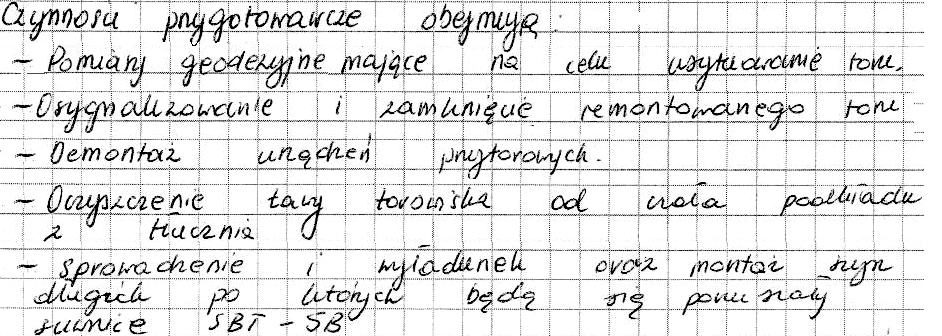 Czynności przygotowawcze obejmują:
- Pomiary geodezyjne mające na celu usytuowanie toru.
- Osygnalizowanie i zamknięcie remontowanego toru
- Demontaż urządzeń przytorowych.
- Oczyszczenie ławy torowiska od czoła podkładu
z tłucznia
- sprowadzenie i wyładunek oraz montaż szyn
długich po których będą się poruszały
suwnice SBT - SB